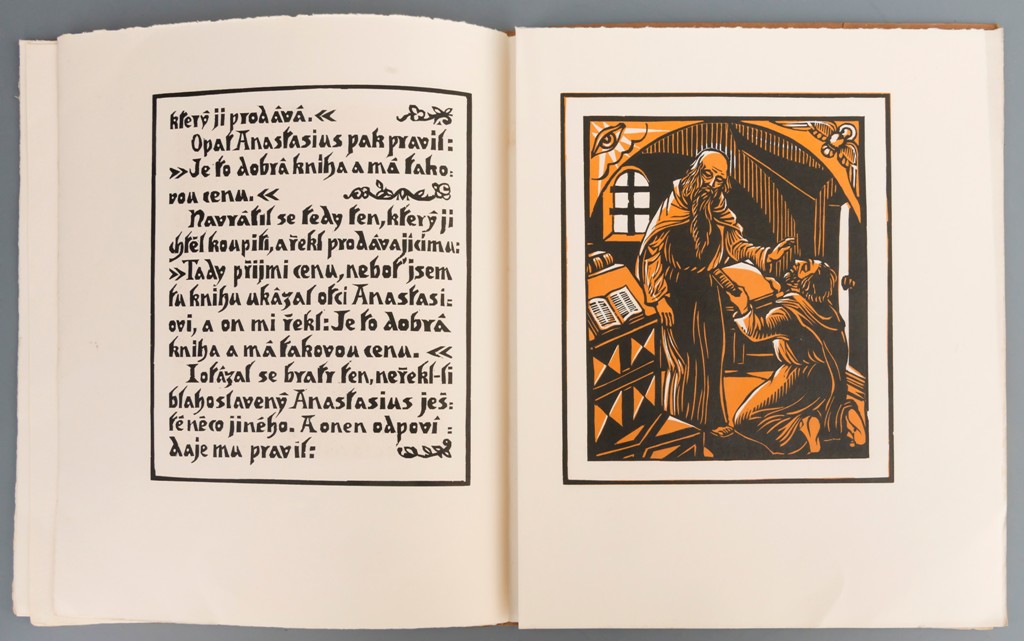 který ji prodâvâ.«
Opat Anastasius pak pravil:
»Je to dobrâ kniha a mâ tako:
vou cenu.«
Navrâtil se tedy ten, který ji
chtěl koupiti, a řekl prodâvajîcîmu:
»Tady přijmi cenu, neboť jsem
tu knihu ukâzal otci Anastasi:
ovi, a on mi řekl: Je to dobrâ
kniha a mâ takovou cenu. «
I otâzal se bratr ten, neřekl-li
blahoslavený Anastasius ješ:
tě něco jiného. A onen odpovî:
daje mu pravil: